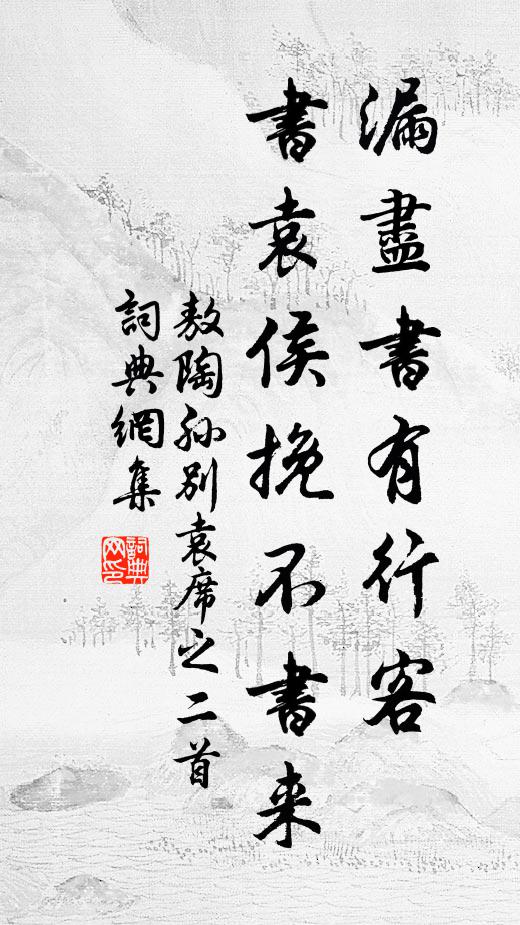 漏盡書有行客
書袁侯挽不書来
敖陶孙別袁席之二首
詞典網集
詞典
网印